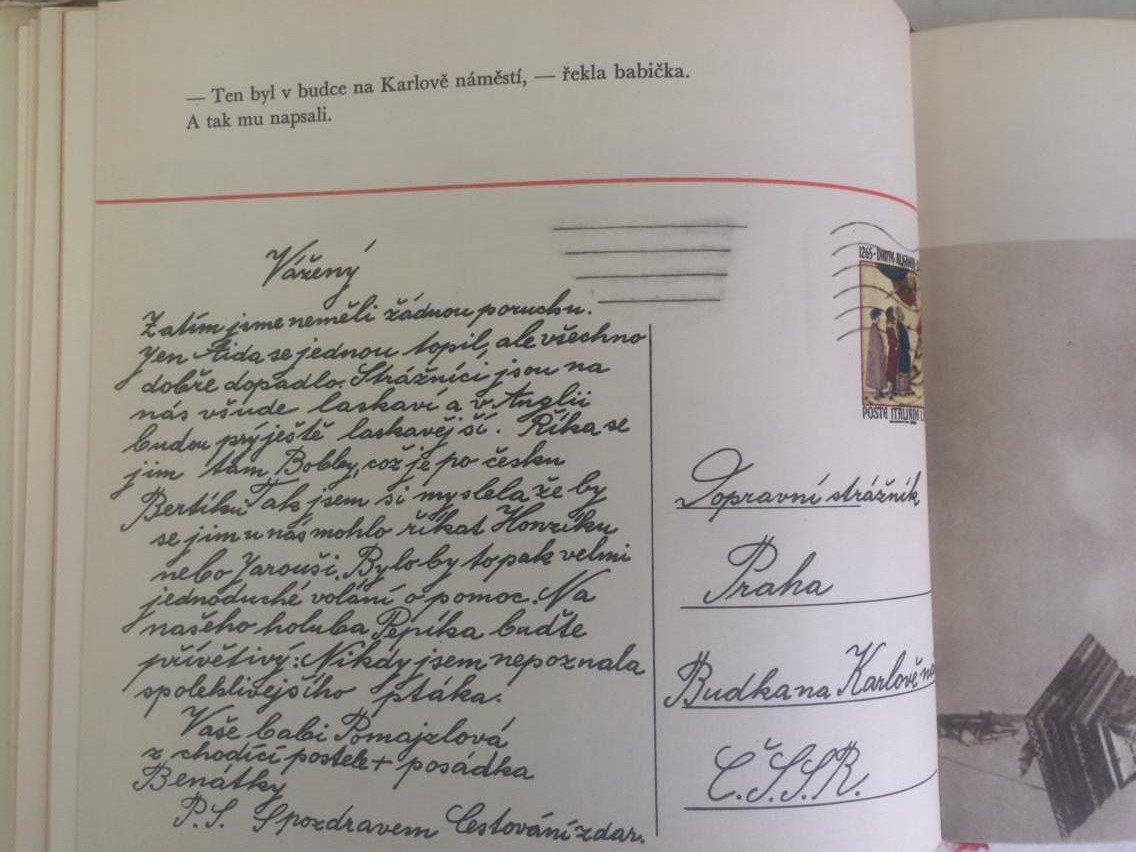 — Ten byl v budce na Karlově náměstí, — řekla babička.
A tak mu napsali.
Vážený
Zatím jsme neměli žádnou poruchu.
Jen Aida se jednou topil, ale všechno
dobře dopadlo. Strážníci jsou na
nás všude laskaví a v Anglii
budou prý ještě laskavější. Říka se
jim tam Bobby, což je po česku
Bertíků Tak jsem si myslela že by
se jim u nás mohlo říkat Honzíku
nebo Jarouši. Bylo by to pak velmi
jednoduché volání o pomoc. Na
našeho holuba Pepíka buďte
přívětivý: Nikdy jsem nepoznala
spolehlivějšího ptáka.
Vaše babi Pomajzlová
z chodící postele + posádka
Benátky
P.S. S pozdravem Cestování zdar.
1265-
POSTE ITALIANE
Dopravní strážník
Praha
Budka na Karlově
Č.S.S.R.